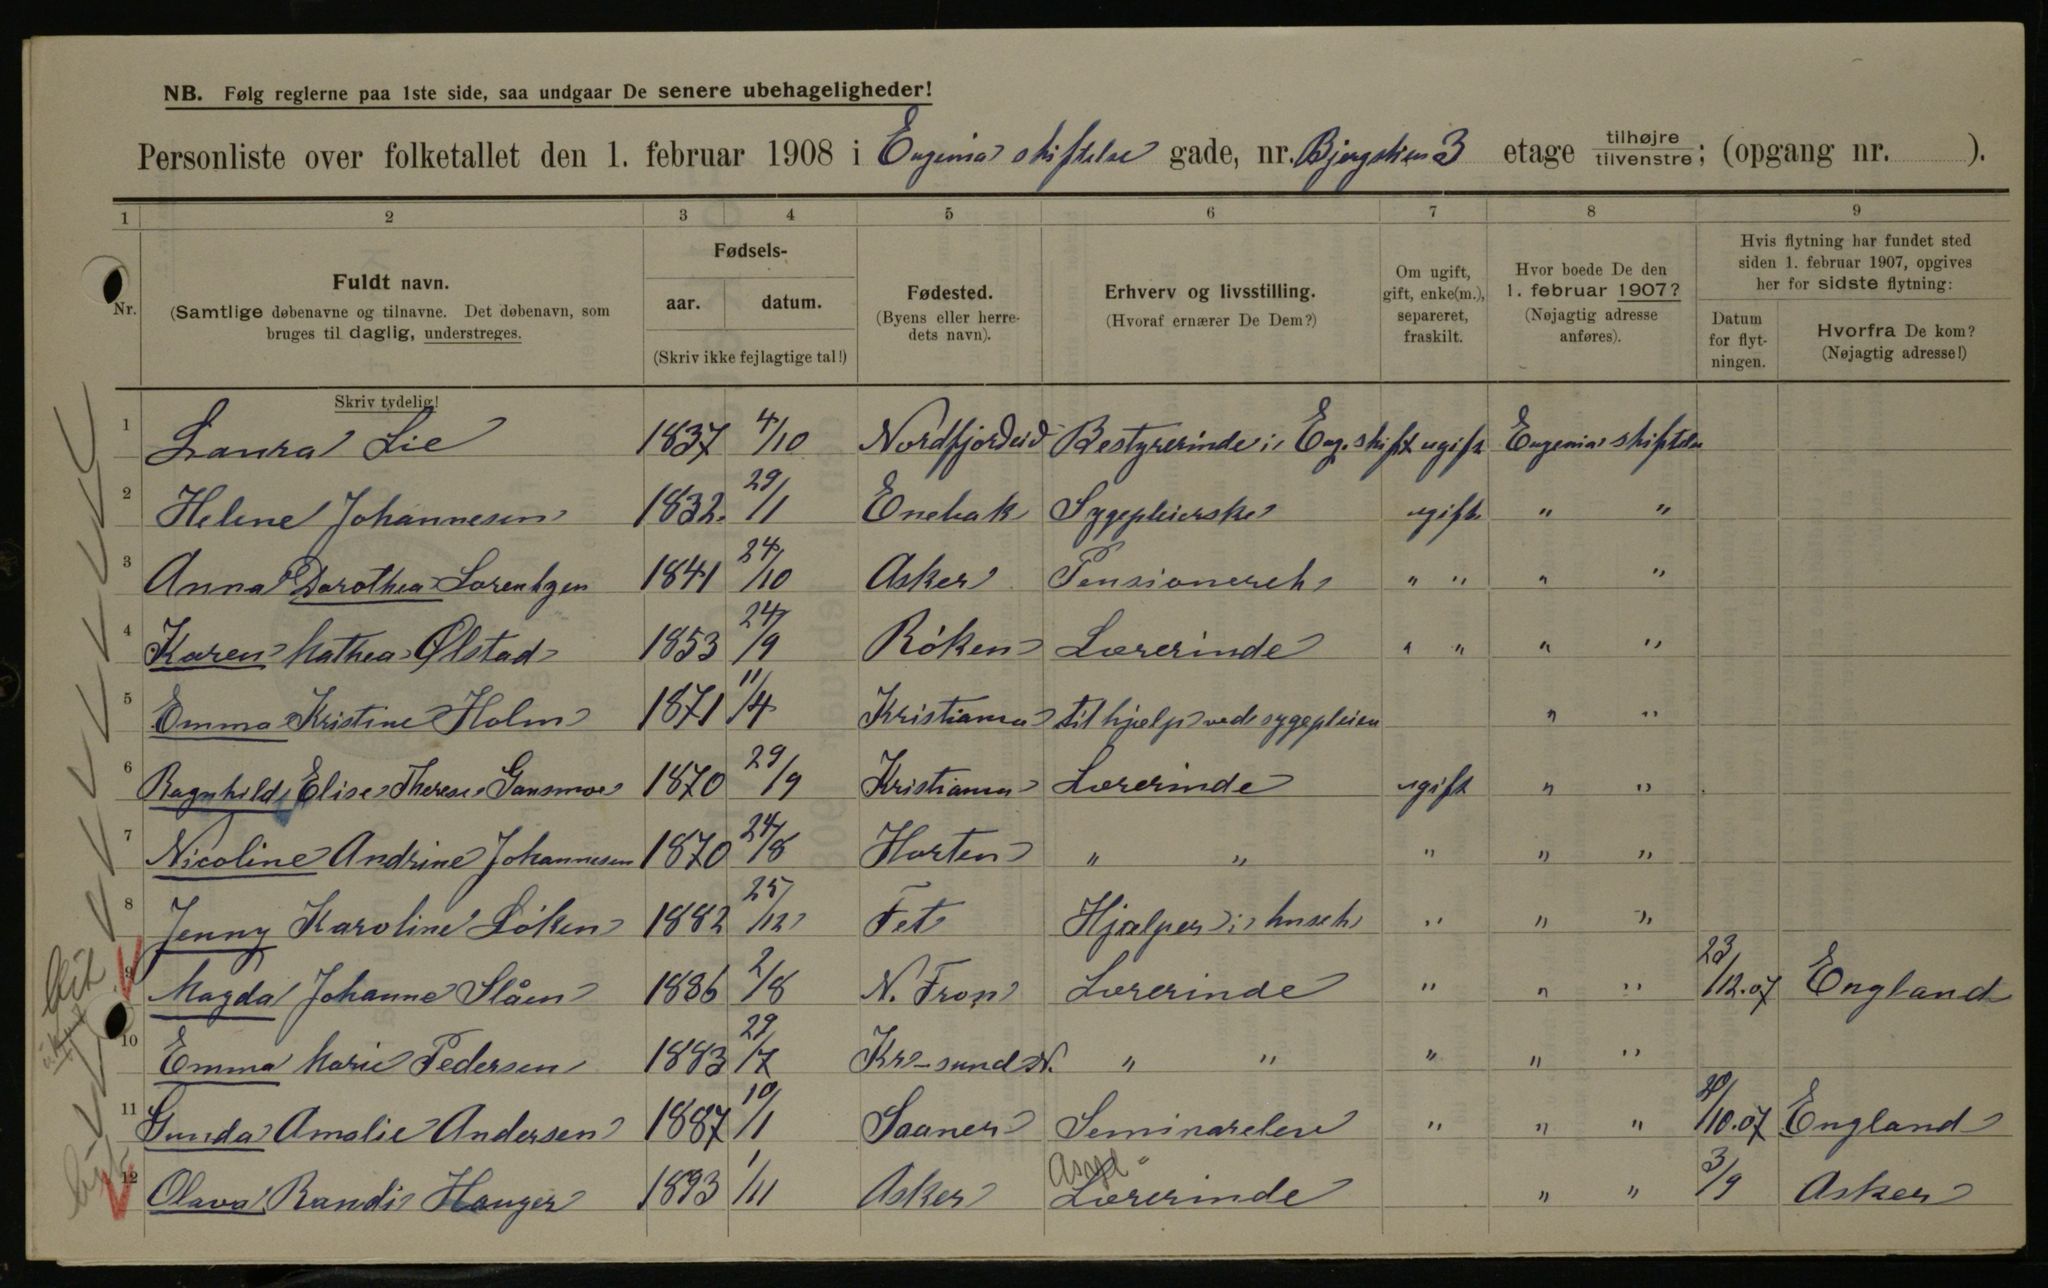 NB. Følg reglerne paa 1ste side, saa undgaar De senere ubehageligheder!
Personliste over folketallet den 1. februar 1908 i Eugenia stiftelse gade, nr. Bjergstien 3 etage tilhøjre tilvenstre; (opgang nr. ).
1 2 3 4 5 6 7 8 9
Nr.
Fuldt navn.
(Samtlige døbenavne og tilnavne. Det døbenavn, som
bruges til daglig, understreges.
Fødsels-
aar. datum.
(Skriv ikke fejlagtige tal!)
Fødested.
(Byens eller herre-
dets navn).
Erhverv og livsstilling.
(Hvoraf ernærer De Dem?)
Om ugift,
gift, enke(m.),
separeret,
fraskilt.
Hvor boede De den
1. februar 1907?
(Nøjagtig adresse
anføres).
Hvis flytning har fundet sted
siden 1. februar 1907, opgives
her for sidste flytning:
Datum
for flyt-
ningen.
Hvorfra De kom?
(Nøjagtig adresse!)
Skriv tydelig!
1 Laura Lie 1837 4/10 Nordfjordeid Bestyrerinde i Eug. stift ugift Eugenia stiftelse
2 Helene Johannesen 1832 29/11 Enebak Sygepleierske ugift " "
3 Anna Dorothea Lorentzen 1841 24/10 Asker Pensioneret " " " "
4 Karen Mathea Ølstad 1853 24/9 Røken Lærerinde " " " "
5 Emma Kristine Holm 1871 11/4 Kristiania til hjælp ved sygepleien " "
6 Ragnhild Elise Therese Gansmoe 1870 29/9 Kristiania Lærerinde ugift " "
7 Nicoline Andrine Johannesen 1870 24/8 Horten " " " " "
8 Jenny Karoline Løken 1882 25/12 Fet Hjælper i huset " " "
9 Magda Johanne Slåen 1886 2/8 N. Fron Lærerinde " " " 23/12.07 England
10 Emma Marie Pedersen 1883 29/7 Kr-sund N. " " " " "
11 Gunda Amalie Andersen 1887 10/1 Saaner Seminarelev " " " /10.07 England
12 Olava Randi Hauger 1893 1/11 Asker Asyl" Lærerinde " " 3/9 Asker